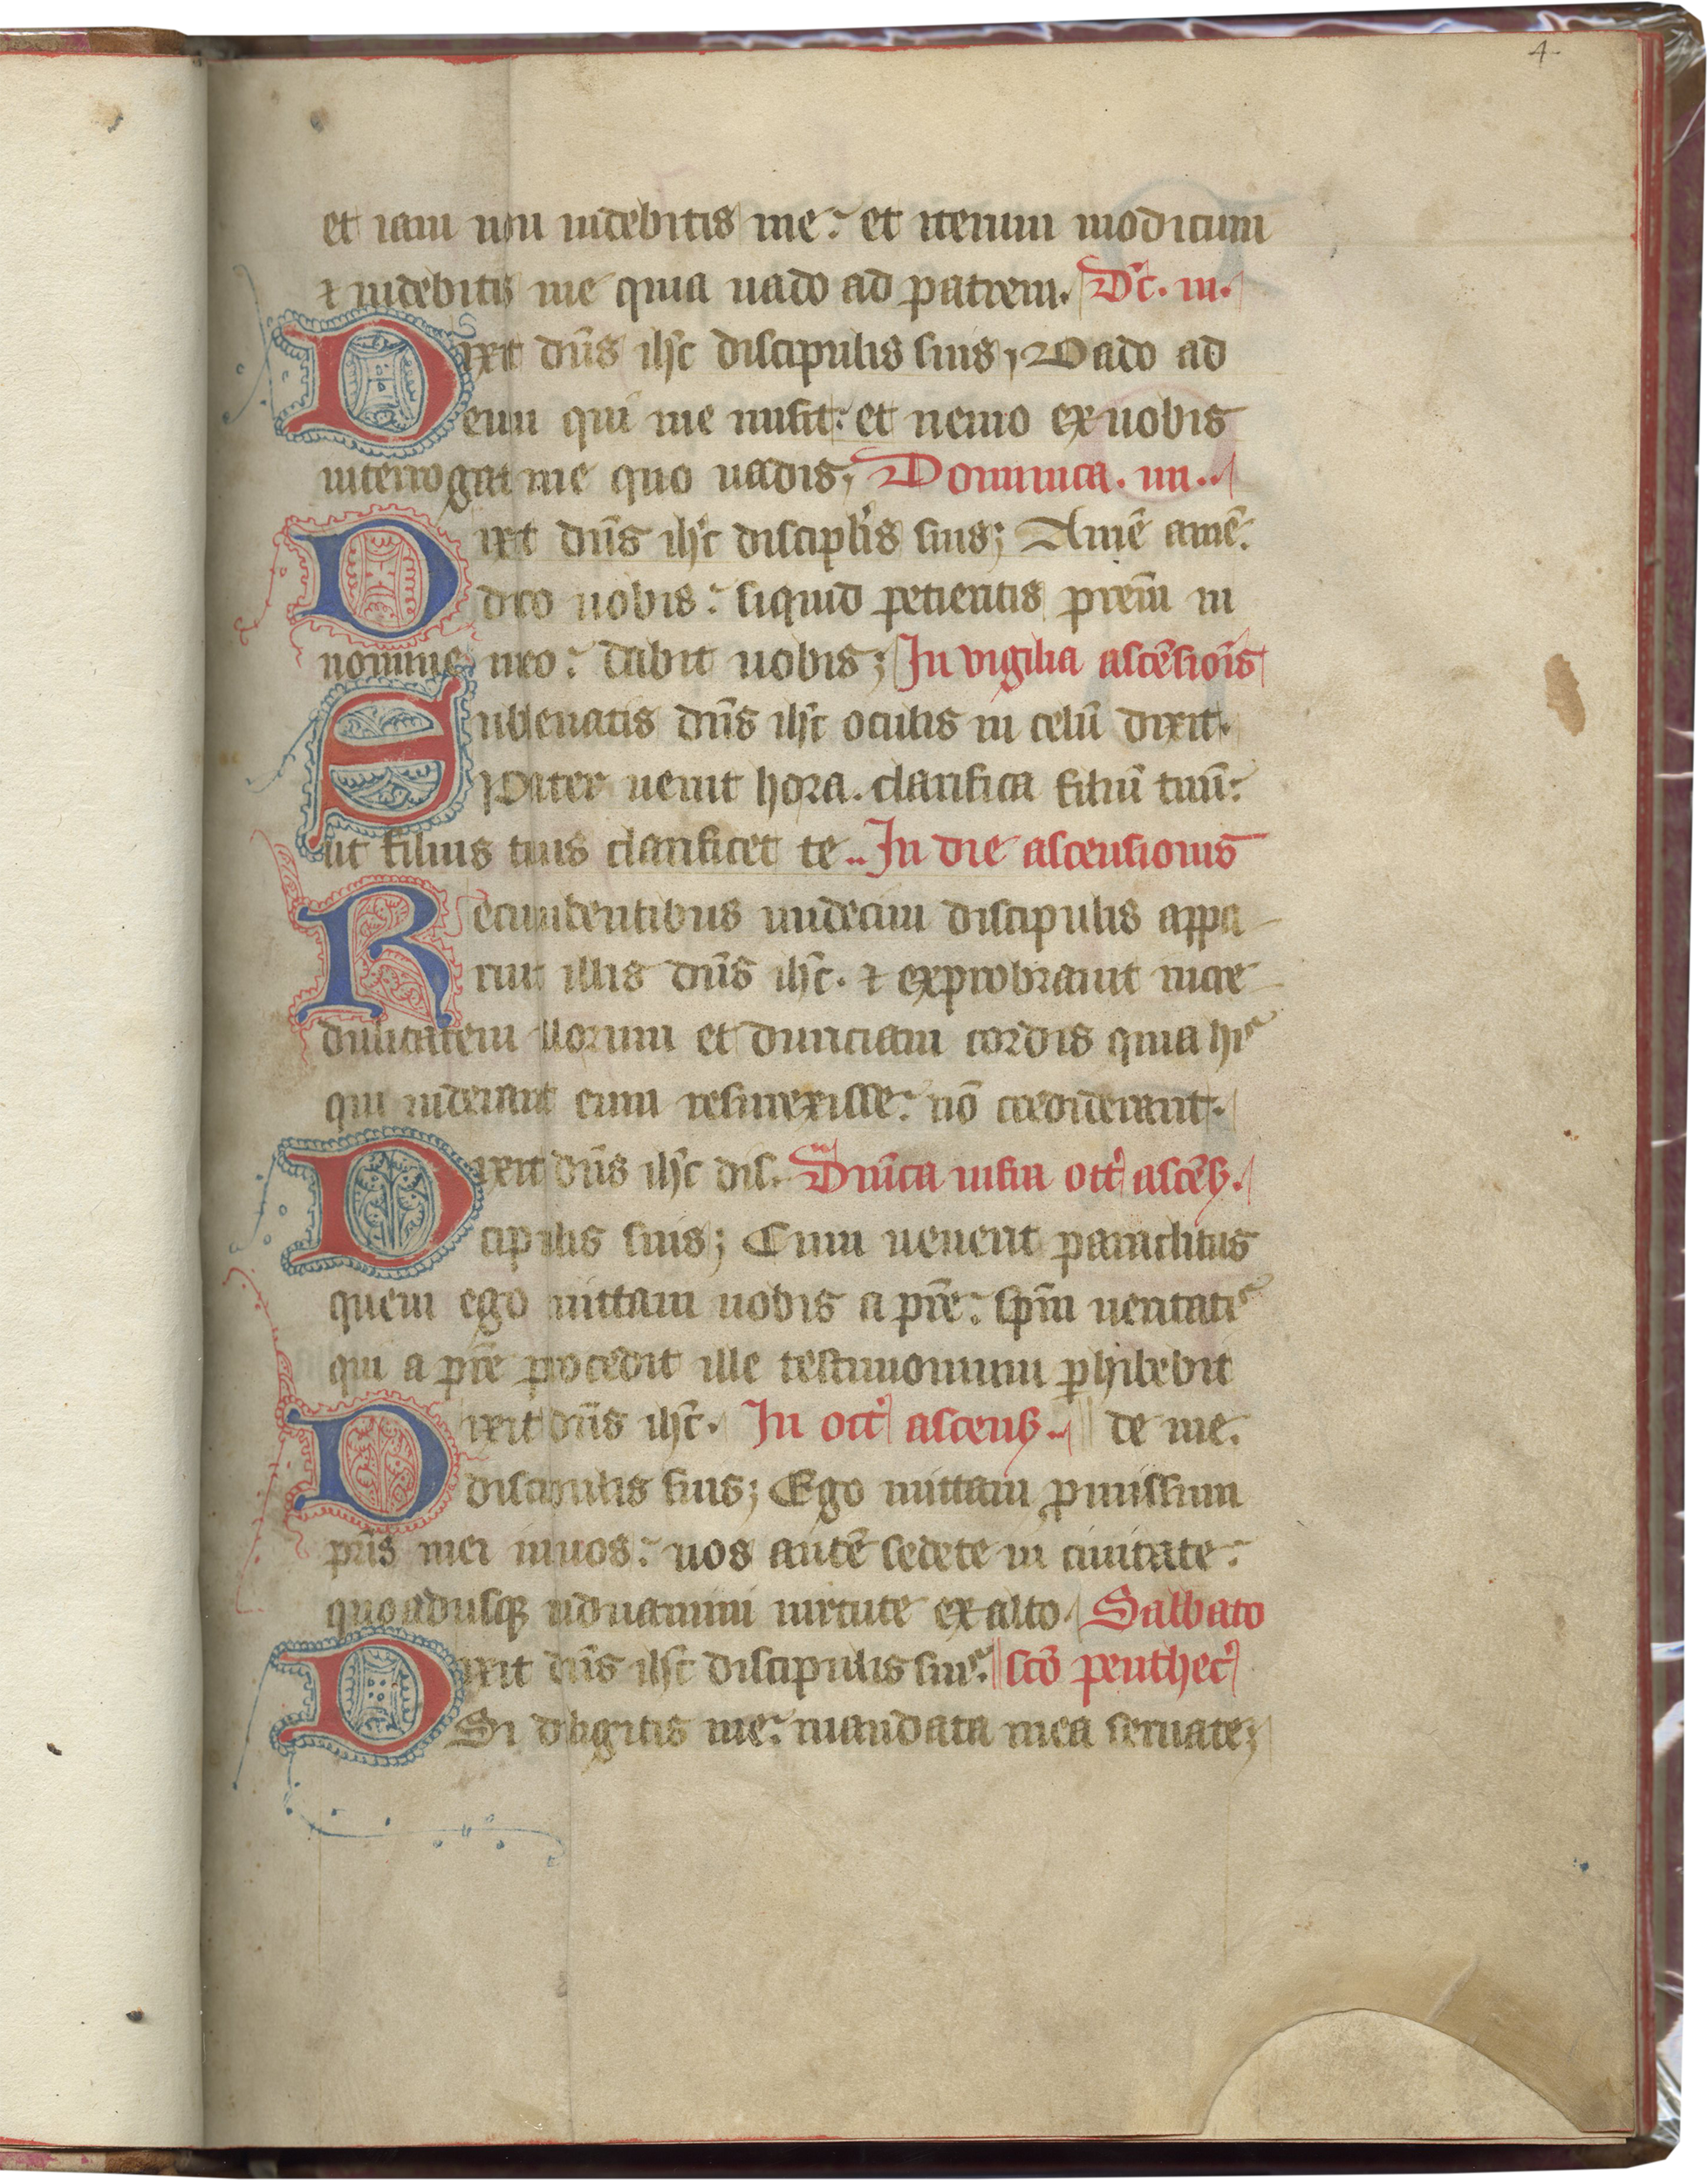 4
et iam non uidebitis me: et iterum modicum
⁊ uidebitis me quia uado ad patrem. Dc̄. iii.
Dixit dn̄s ihc̄ discipulis suis, Vado ad
eum qui me misit: et nemo ex uobis
interrogat me quo uadis; Dominica. iiii..
Dixit dn̄s ihc̄ discipl̄is suis; Amē amē:
dico uobis: siquid petieritis prēm in
nomine meo: dabit uobis; In vigilia ascēsiōis
Subleuatis dn̄s ihc̄ oculis in celū dixit.
Pater uenit hora. clarifica filiū tuū:
ut filius tuus clarificet te.. In die ascensionis
Recumbentibus undecim discipulis appa
ruit illis dn̄s ihc̄. ⁊ exprobrauit incre
dulitatem illorum et duriciam cordis quia hi
qui uiderant eum resurrexisse: nō crediderant.
Dixit dn̄s ihc̄ dis. Dn̄ica infra oct' ascēs.
cipulis suis; Cum uenerit paraclitus
quem ego mittam uobis a prē: spm̄ ueritatis
qui a prē procedit ille testimonium ꝑhibebit
Dixit dn̄s ihc̄. In oct' ascens.. de me.
discipulis suis; Ego mittam ꝓmissum
pr̄is mei inuos: uos autē sedete in ciuitate:
quoadusqꝫ induamini uirtute ex alto. Sabbato
Dixit dn̄s ihc̄ discipulis suis. scō penthec'
Si diligitis me: mandata mea seruate;